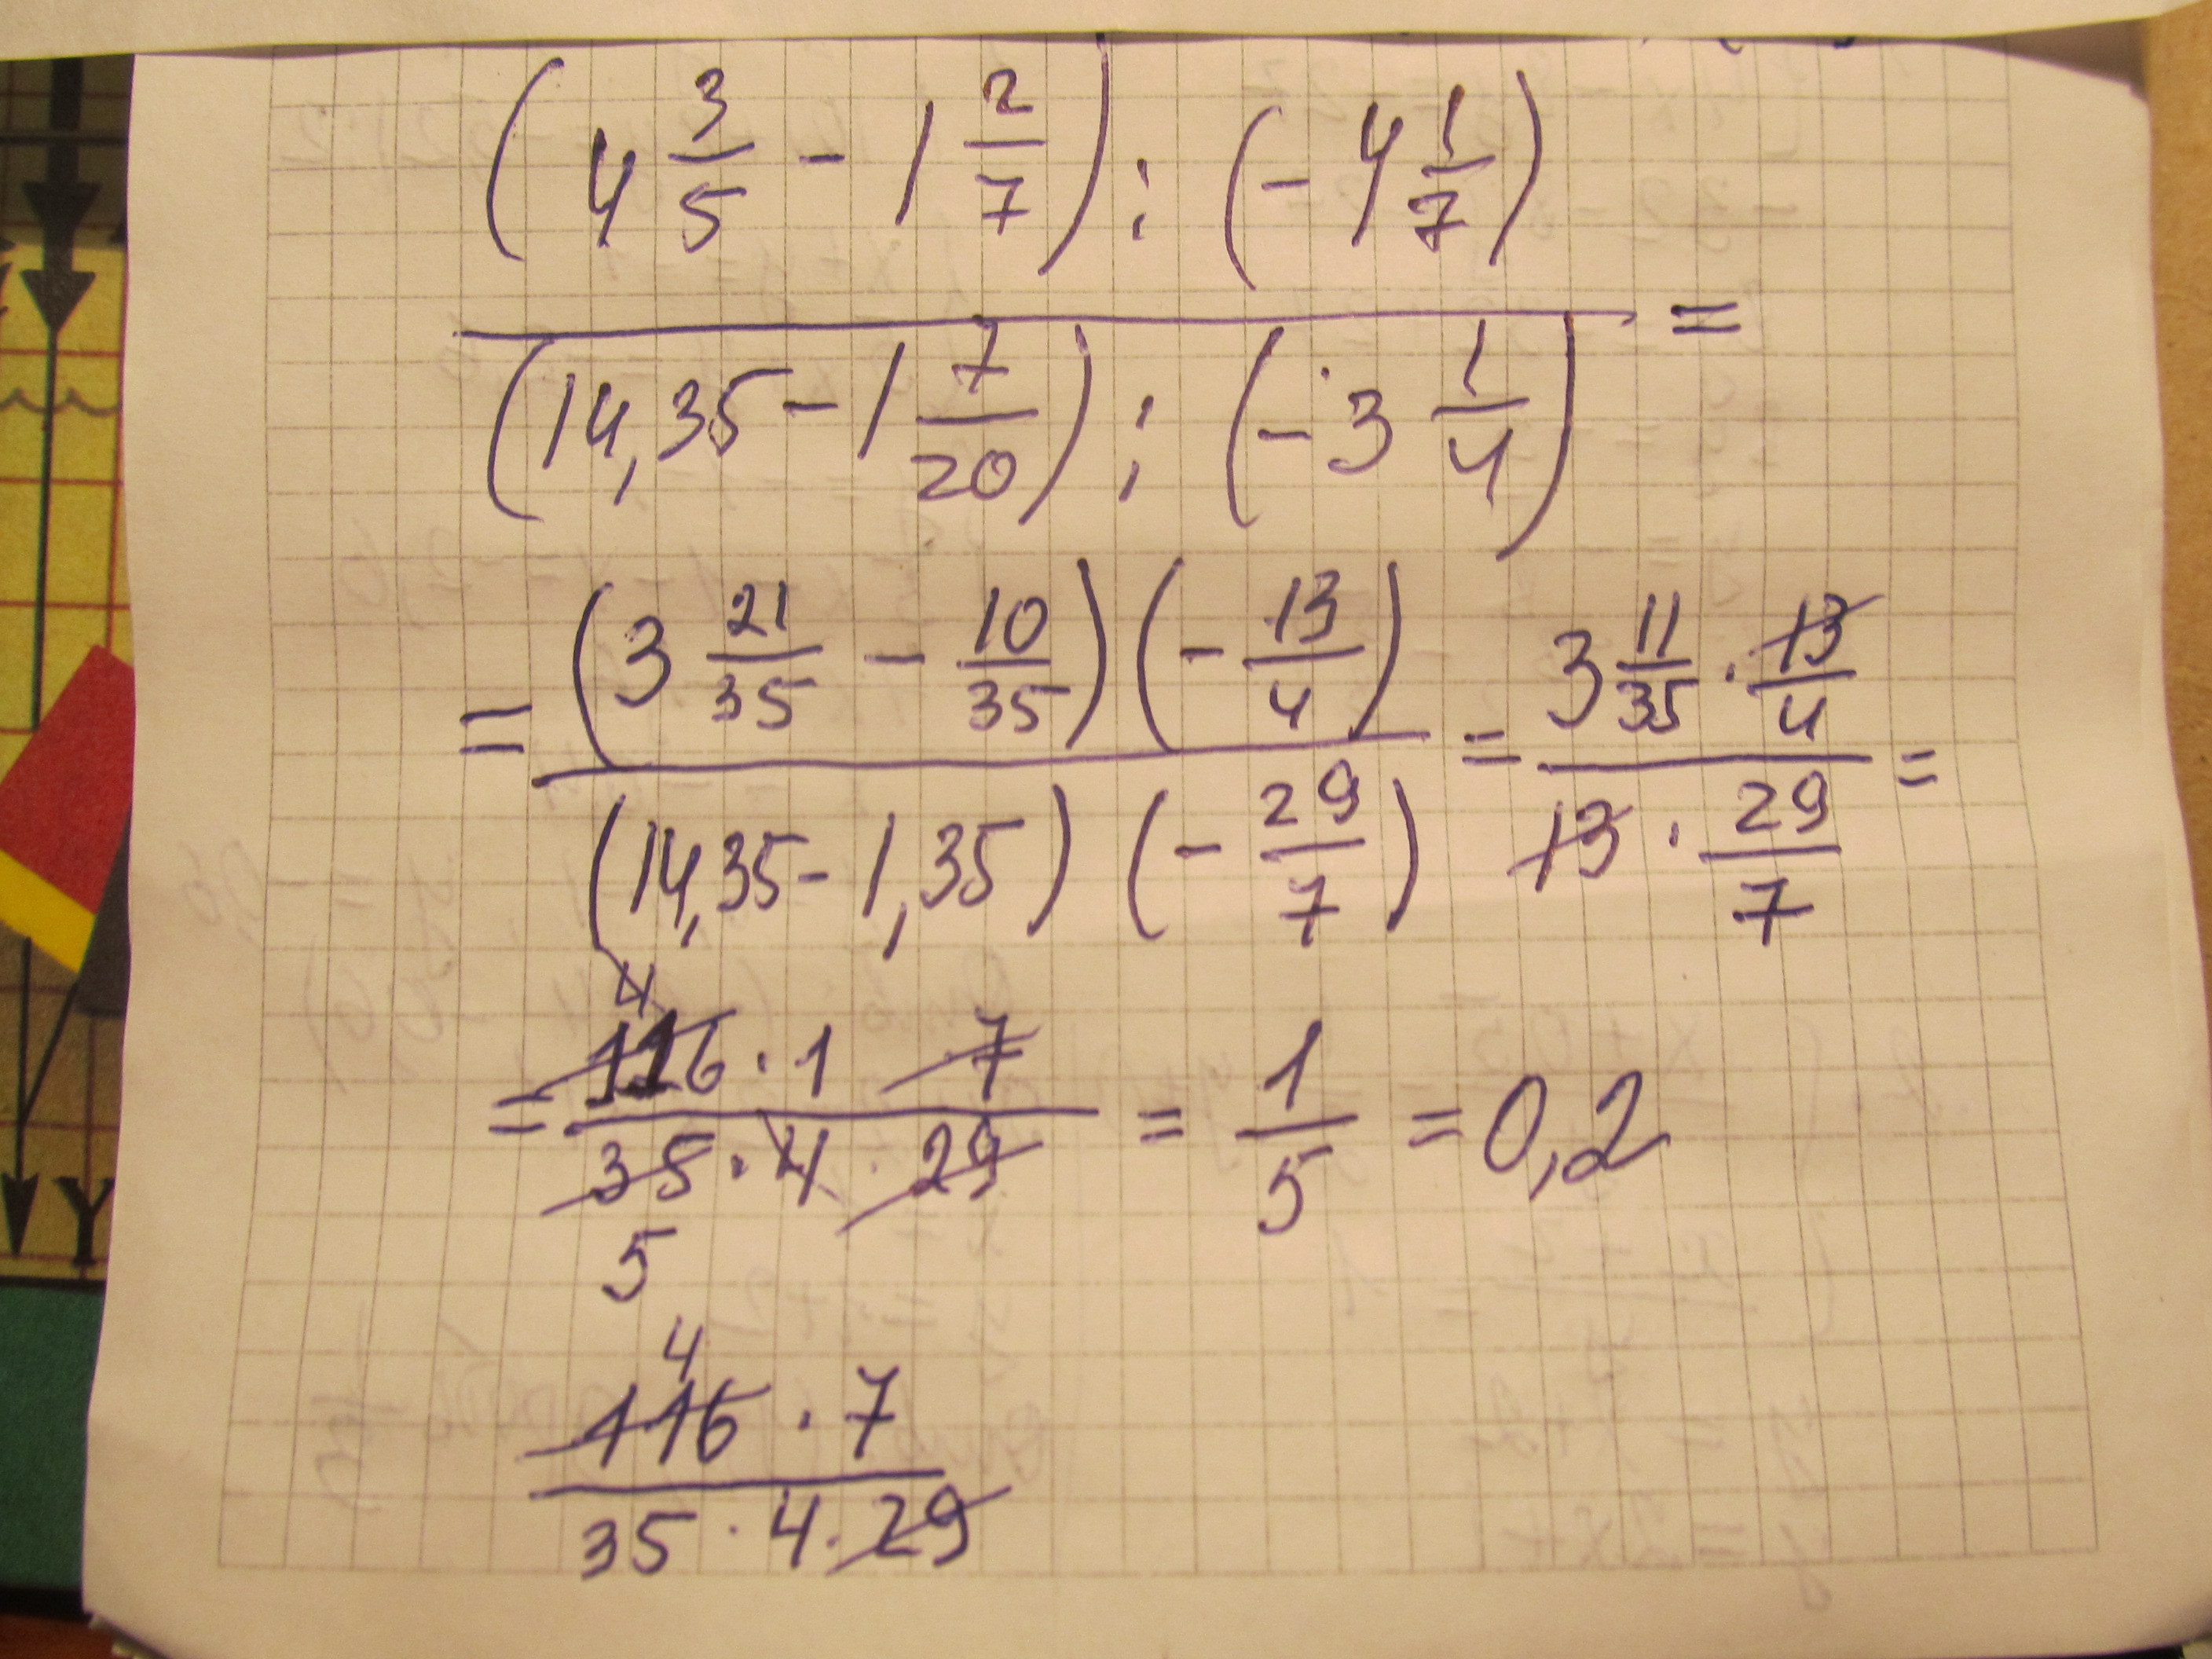 (4 3/5 - 1 2/7) : (- 4 1/7)
=
(14,35 - 1 7/20) : (- 3 1/4)
= (3 21/35 - 10/35)(- 13/4) / (14,35 - 1,35)(- 29/7) = 3 11/35 · 13/4 / 13 · 29/7 =
4
= 116 · 1 · 7 / 35 · 4 · 29 = 1/5 = 0,2
5
4
116 · 7
35 · 4 · 29
Y